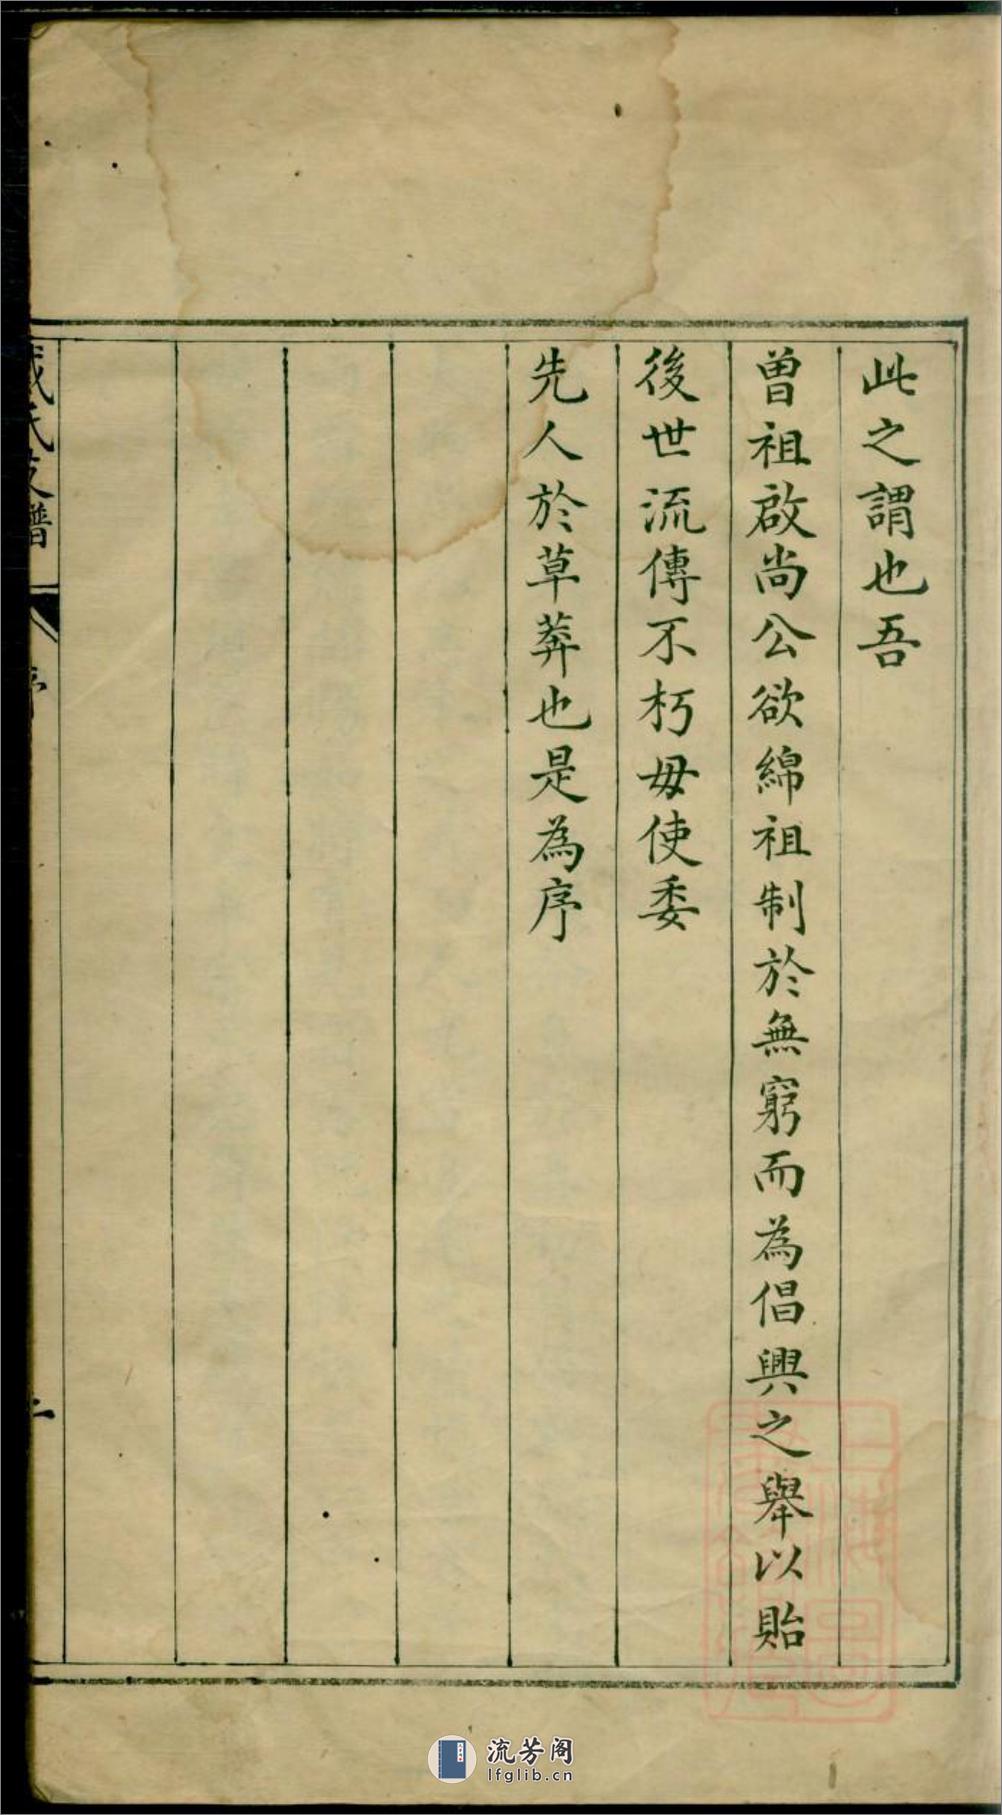 此之謂也吾
曾祖啟尚公欲綿祖制於無窮而為倡興之舉以貽
後世流傳不朽毋使委
先人於草莽也是為序
氏支譜
序
流芳阁
lfglib.cn